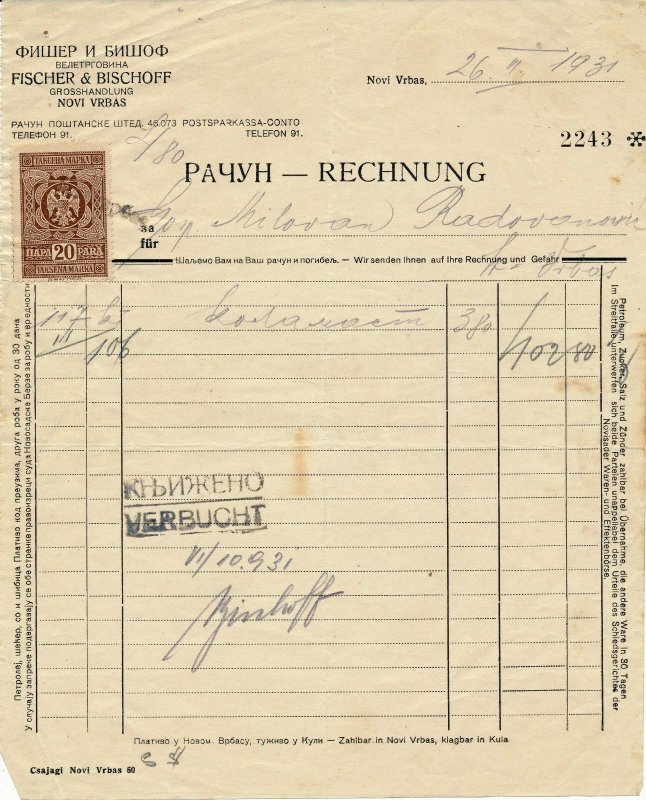 ФИШЕР И БИШОФ
ВЕЛЕТРГОВИНА
FISCHER & BISCHOFF
GROSSHANDLUNG
NOVI VRBAS
Novi Vrbas, 26. II 1931
РАЧУН ПОШТАНСКЕ ШТЕД. 46.073 POSTSPARKASSA-CONTO
ТЕЛЕФОН 91. TELEFON 91.
2243 ✻
ТАКСЕНА МАРКА
ПАРА 20 PARA
TAKSENA MARKA
РАЧУН — RECHNUNG
за
für
Milovan Radovanović
Vrbas
Шаљемо Вам на Ваш рачун и погибељ. — Wir senden Ihnen auf Ihre Rechnung und Gefahr
коламаст 3.80 402 80
III 106
КЊИЖЕНО
VERBUCHT
VI/10.931
Bischoff
Петролеј, шећер, со и шибица Плативо код преузима, друга роба у року од 30 дана
У случају запреке подвргавају се обе странке правоизреци суда Новосадске Берзе за робу и вредности
Petroleum, Zucker, Salz und Zünder zahlbar bei Übernahme, die andere Ware in 30 Tagen
Im Streitfalle unterwerfen sich beide Parteien unappellabel dem Urteile des Schiedsgerichtes der
Novisader Waren- und Effektenbörse.
Плативо у Новом Врбасу, туживо у Кули — Zahlbar in Novi Vrbas, klagbar in Kula
Csajagi Novi Vrbas 60